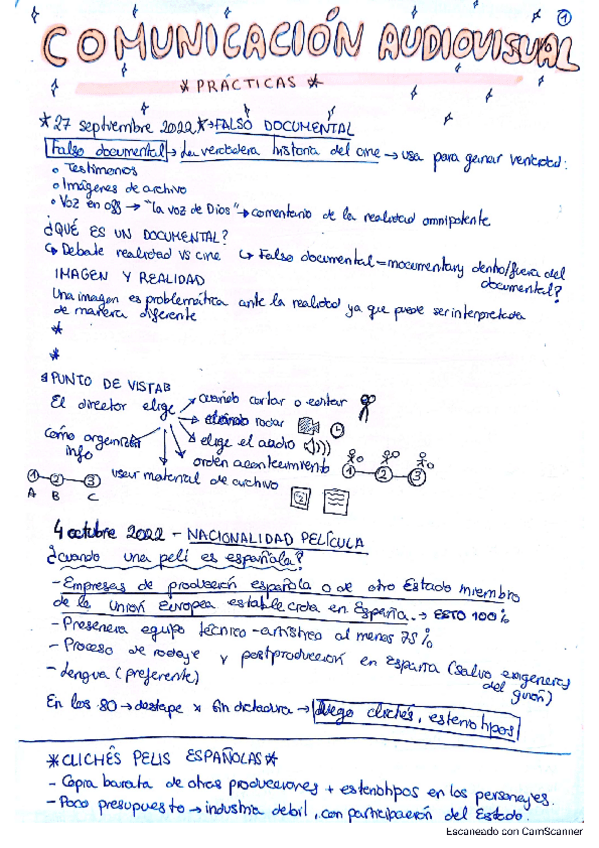 1
COMUNICACIÓN AUDIOVISUAL
* PRÁCTICAS *
* 27 septiembre 2022 * → FALSO DOCUMENTAL
Falso documental → La verdadera historia del cine → usa para ganar veracidad:
• Testimonios
• Imágenes de archivo
• Voz en off → "la voz de Dios" → comentario de la realidad omnipotente
¿QUÉ ES UN DOCUMENTAL?
↳ Debate realidad VS cine ↳ Falso documental = mocumentary dentro/fuera del
documental?
IMAGEN Y REALIDAD
Una imagen es problemática ante la realidad ya que puede ser interpretada
de manera diferente
*
*
PUNTO DE VISTA
El director elige
cuándo cortar o editar
cuándo rodar
elige el audio
orden acontecimiento
1 2 3
cómo organizar
info
usar material de archivo
1 2 3
A B C
4 octubre 2022 - NACIONALIDAD PELÍCULA
¿cuando una peli es española?
- Empresas de producción española o de otro Estado miembro
de la Unión Europea establecida en España. → ESTO 100%
- Presencia equipo técnico-artístico al menos 75%
- Proceso de rodaje y postproducción en España (salvo exigencias
del guión)
- Lengua (preferente)
En los 80 → destape x fin dictadura → luego clichés, estereotipos
* CLICHÉS PELIS ESPAÑOLAS *
- Copia barata de otras producciones + estereotipos en los personajes.
- Poco presupuesto → industria debil, con participación del Estado.
Escaneado con CamScanner